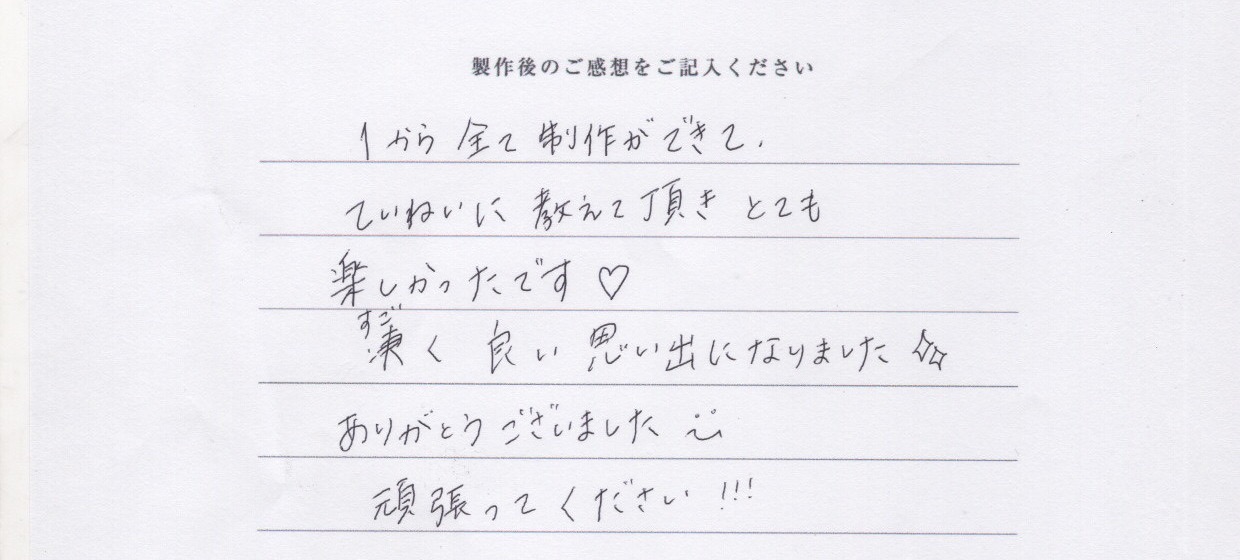 製作後のご感想をご記入ください
1から全て制作ができて、
ていねいに教えて頂きとても
楽しかったです♡
すご
凄く良い思い出になりました☆☆
ありがとうございました
頑張ってください!!!